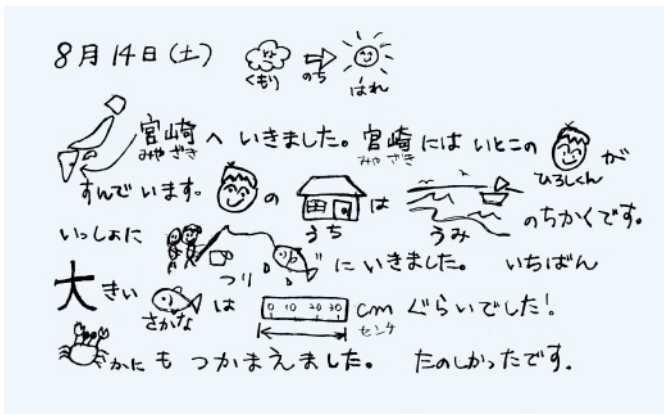 8月14日(土) くもり のち はれ
宮崎へ いきました。宮崎には いとこの が
みやざき みやざき ひろしくん
すんでいます。 の うち は うみ のちかくです。
いっしょに つり にいきました。 いちばん
大きい さかな は 0 10 20 30 cm ぐらいでした!
センチ
かにも つかまえました。 たのしかったです.